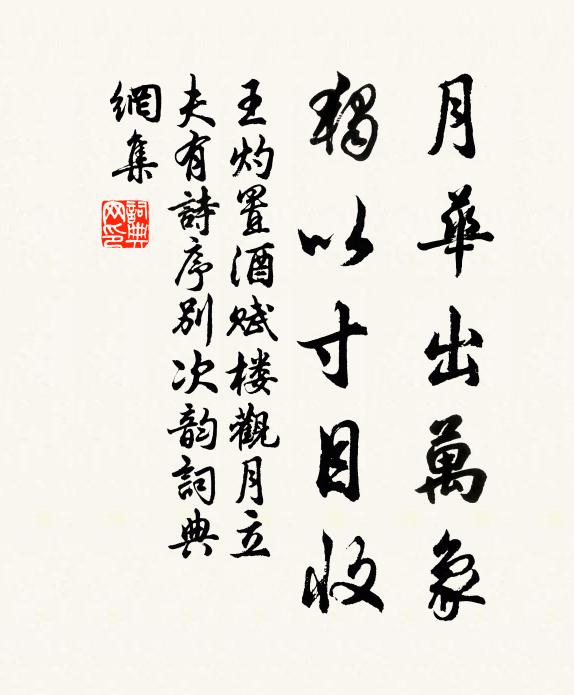 月華出萬象
獨以寸目收
王灼置酒賦楼觀月立
夫有詩序别次韵詞典
網集
詞典网印